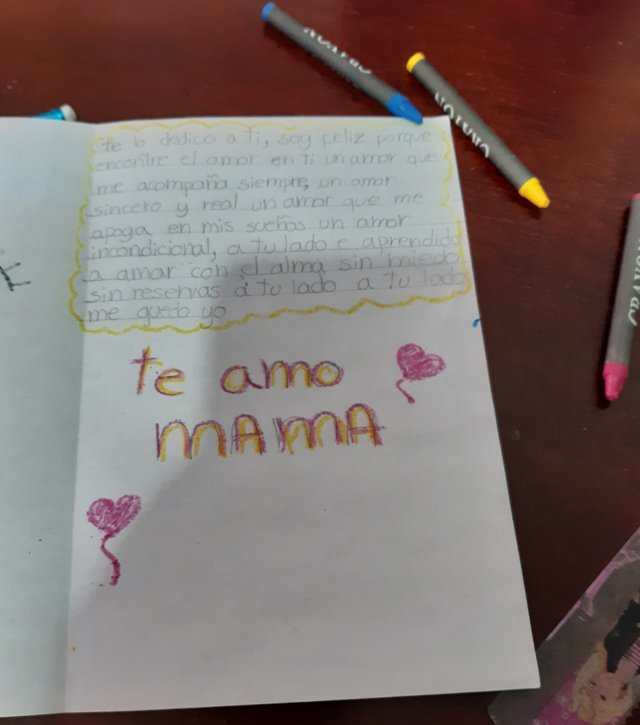 te lo dedico a ti, soy feliz porque
encontre el amor en ti un amor que
me acompaña siempre, un amor
sincero y real un amor que me
apoya en mis sueños un amor
incondicional, a tu lado e aprendido
a amar con el alma sin miedo
sin reservas a tu lado a tu lado
me quedo yo
te amo
MAMA